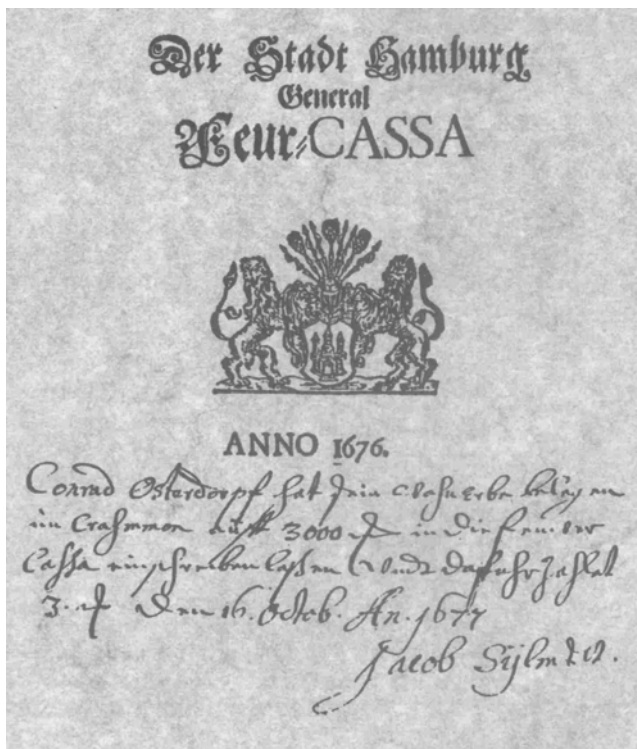 Der Stadt Hamburg
General
Feur-CASSA
ANNO 1676.
Conrad Osterdorpf hat sein belegen
im auff 3000 in die feuwer
Cassa einschreiben laßen Vndt dafuhr zahlet
3. Den 16. Octob. An. 1677
Jacob